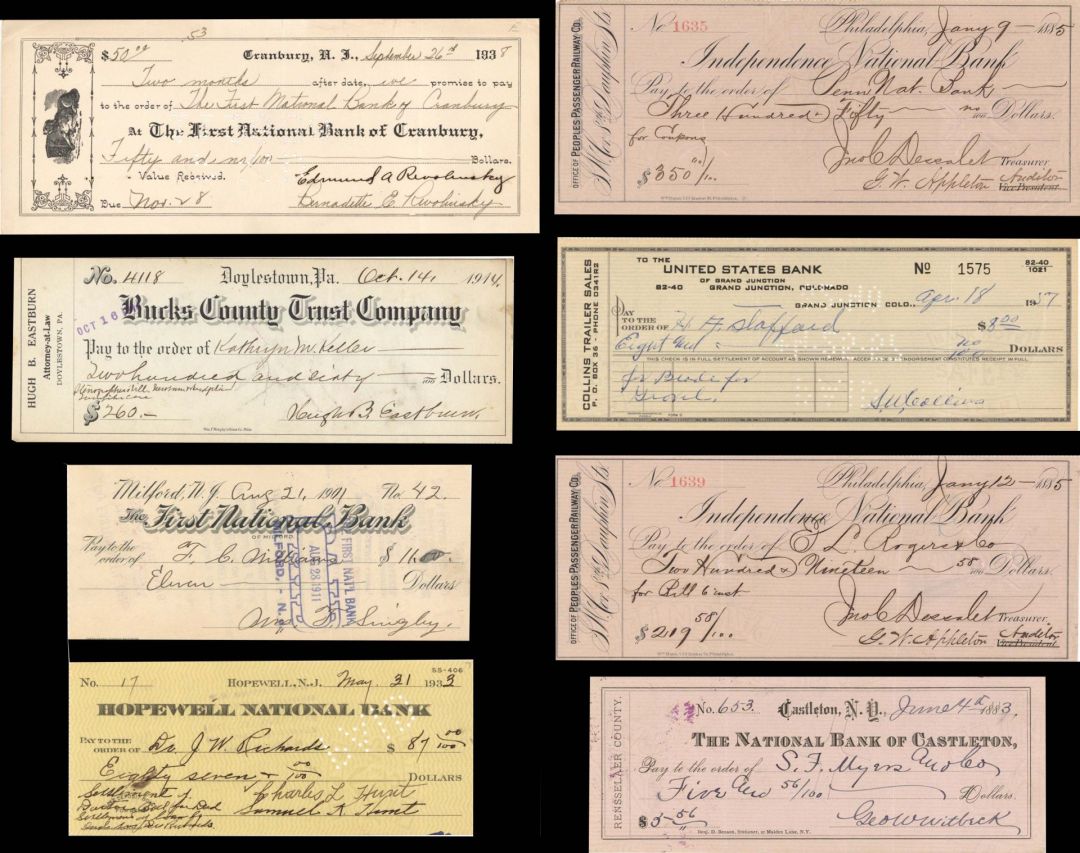 53
$50.00 Cranbury, N. J., September 26th 1938
Two months after date, we promise to pay
to the order of The First National Bank of Cranbury
At The First National Bank of Cranbury,
Fifty and no/100 Dollars.
Value Received. Edmund A Rwolinsky
Due Nov. 28 Bernadette E. Rwolinsky
HUGH B. EASTBURN
Attorney-at-Law
DOYLESTOWN, PA.
No. 4118 Doylestown, Pa. Oct. 14, 1914.
OCT 16
Bucks County Trust Company
Pay to the order of Kathryn M. Heller
Two hundred and sixty Dollars.
$260.— Hugh B. Eastburn.
Milford, N.J. Aug 21, 1911 No. 42.
The First National Bank
OF MILFORD
Pay to the
order of F. C. Williams $11.00
Eleven Dollars
PAID
AUG 28 1911
FIRST NAT'L BANK
MILFORD, - N.J.
SS-406
No. 17 HOPEWELL, N.J. May 31 1933
HOPEWELL NATIONAL BANK
PAY TO THE
ORDER OF Dr. J. W. Richards $87 00/100
Eighty seven + 00/100 DOLLARS
Settlement of Charles L Hunt
Samuel K. Hunt
OFFICE OF PEOPLES PASSENGER RAILWAY CO.
No 1635 Philadelphia, Jany 9 — 1885
Independence National Bank
Pay to the order of Penn Nat. Bank
Three Hundred & Fifty — no/100 Dollars.
for Coupons
$350 00/100 Jno C Dessalet Treasurer.
G. W. Appleton Auditor
Vice President
COLLINS TRAILER SALES
P. O. BOX 36 - PHONE 0341R2
TO THE
UNITED STATES BANK No 1575 82-40
1021
OF GRAND JUNCTION
82-40 GRAND JUNCTION, COLORADO
GRAND JUNCTION COLO., Apr. 18 1957
PAY
TO THE
ORDER OF H. A. Stafford $8.00
Eight and no/100 DOLLARS
THIS CHECK IS IN FULL SETTLEMENT OF ACCOUNT AS SHOWN HEREWITH. ACCEPTANCE BY ENDORSEMENT CONSTITUTES RECEIPT IN FULL
for
S. W. Collins
OFFICE OF PEOPLES PASSENGER RAILWAY CO.
No 1639 Philadelphia, Jany 12 — 1885
Independence National Bank
Pay to the order of S. L. Rogers & Co
Two Hundred & Nineteen — 58/100 Dollars.
for Bill
$219 58/100 Jno C Dessalet Treasurer.
G. W. Appleton Auditor
Vice President
RENSSELAER COUNTY.
No. 653. Castleton, N. Y., June 4th 1883.
THE NATIONAL BANK OF CASTLETON,
Pay to the order of S. F. Myers and Co
Five and 56/100 Dollars.
$5.56 Geo W Witbeck
Benj. D. Benson, Stationer, 21 Maiden Lane, N.Y.